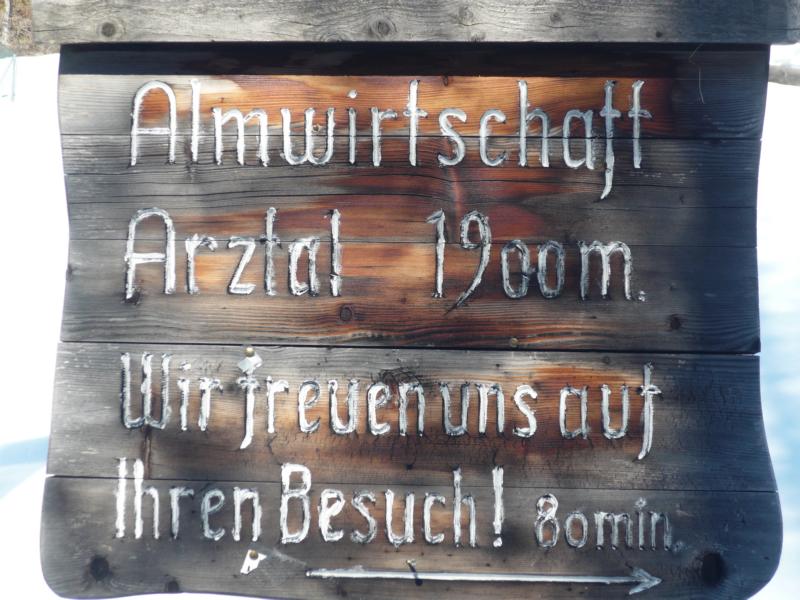 Almwirtschaft
Arztal 1900m.
Wir freuen uns auf
Ihren Besuch! 80min.